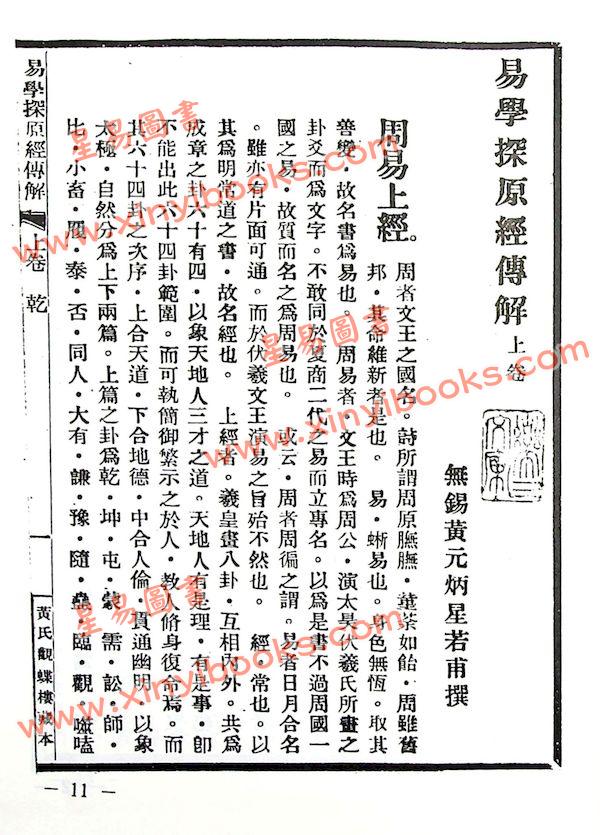 易學探原經傳解 上卷
無錫黃元炳星若甫撰
周易上經。 周者文王之國名。詩所謂周原膴膴・堇荼如飴・周雖舊
邦・其命維新者是也。 易・蜥易也。身色無恆。取其
善變・故名書爲易也。 周易者。文王時爲周公・演太昊伏羲氏所畫之
卦爻而爲文字。不敢同於夏商二代之易而立專名。以爲是書不過周國一
國之易・故質而名之爲周易也。 或云・周者周徧之謂。易者日月合名
。雖亦有片面可通。而於伏羲文王演易之旨殆不然也。 經・常也。以
其爲明常道之書・故名經也。 上經者。羲皇畫八卦・互相內外。共爲
成章之卦六十有四・以象天地人三才之道。天地人有是理・有是事・卽
不能出此六十四卦範圍。而可執簡御繁示之於人・教人脩身復命焉。而
其六十四卦之次序・上合天道・下合地德・中合人倫・貫通幽明・以象
太極・自然分爲上下兩篇。上篇之卦爲乾・坤・屯・蒙・需・訟・師・
比・小畜・履・泰・否・同人・大有・謙・豫・隨・蠱・臨・觀・噬嗑
易學探原經傳解 上卷 乾
一
黃氏觀蝶樓藏本
— 11 —
星易圖書
www.xinyibooks.com
星易圖書
www.xinyibooks.com
星易圖書
www.xinyibooks.com